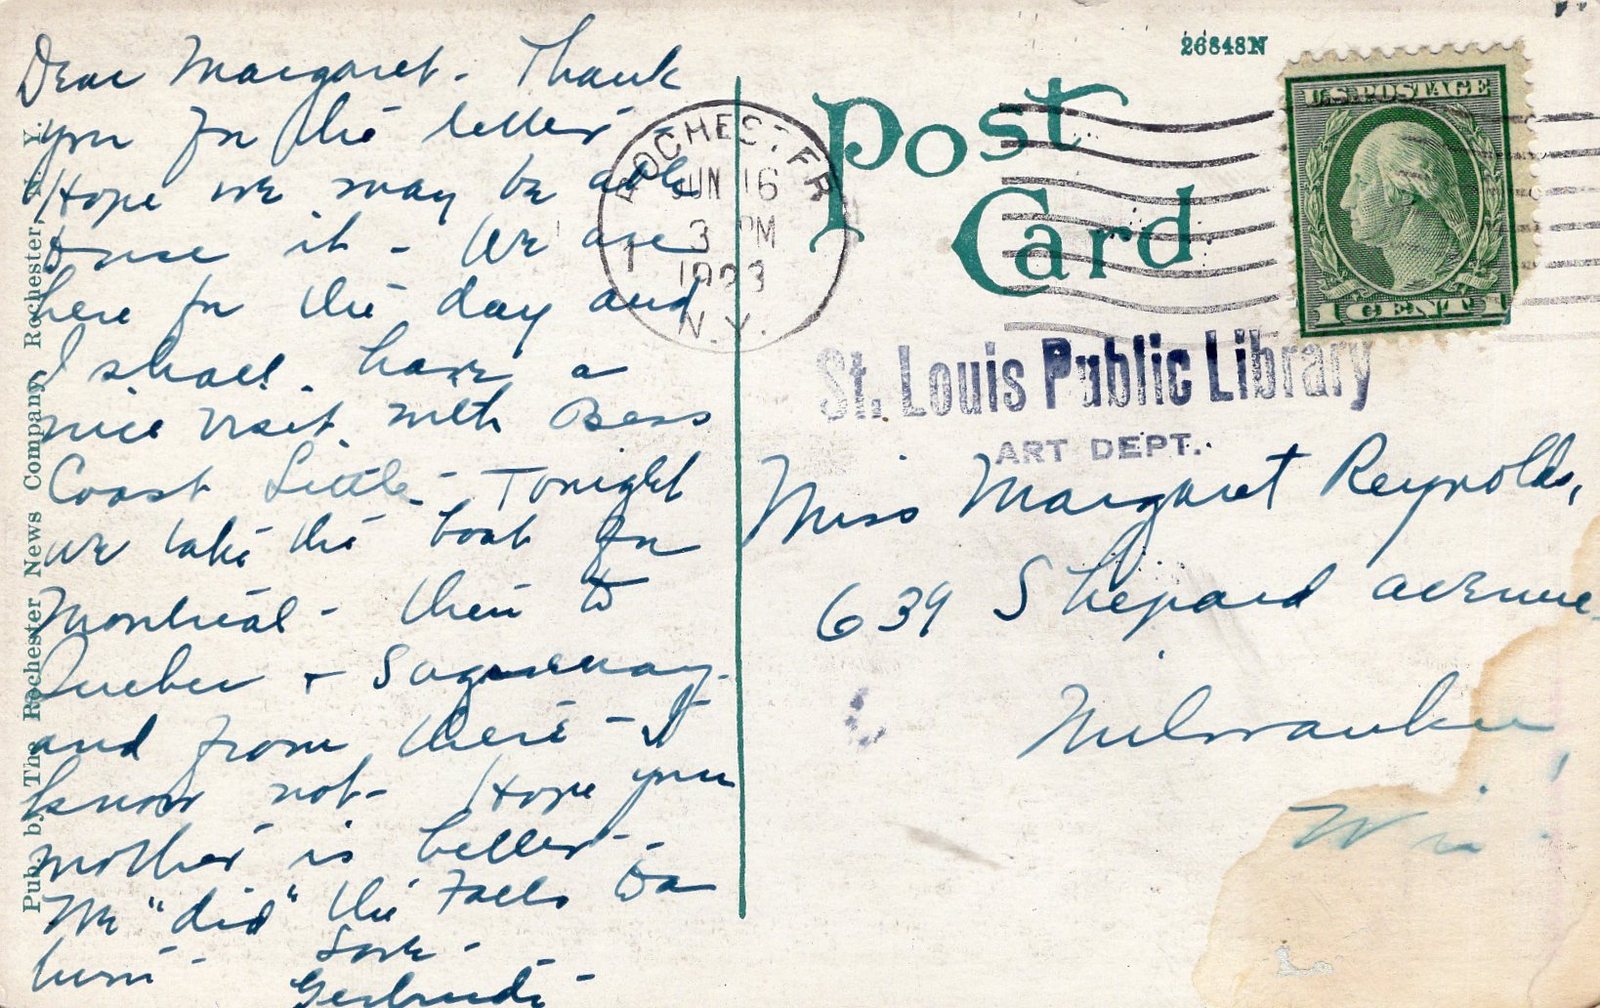 Dear Margaret. Thank
you for the letter
Hope we may be able
to use it - We are
here for the day and
I shall have a
nice visit with Bess
Coast Little - Tonight
we take the boat for
Montreal - then to
Quebec + Saguenay -
and from there - I
know not - Hope your
mother is better -
We "did" the Falls to a
turn - Love -
Gertrude -
Pub. by The Rochester News Company, Rochester, N. Y.
26848N
Post
Card
U.S. POSTAGE
1 CENT 1
ROCHESTER
JUN 16
3 PM
1923
N.Y.
St. Louis Public Library
ART DEPT.
Miss Margaret Reynolds,
639 Shepard Avenue
Milwaukee,
Wis